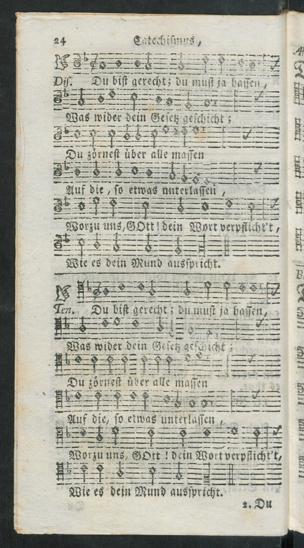 24 Catechismus,
Dis. Du bist gerecht; du must ja hassen,
Was wider dein Gesetz geschicht;
Du zörnest über alle massen
Auf die, so etwas unterlassen,
Worzu uns, GOtt! dein Wort verpflicht't,
Wie es dein Mund ausspricht.
Ten. Du bist gerecht; du must ja hassen,
Was wider dein Gesetz geschicht;
Du zörnest über alle massen
Auf die, so etwas unterlassen,
Worzu uns, GOtt! dein Wort verpflicht't,
Wie es dein Mund ausspricht.
2. Du